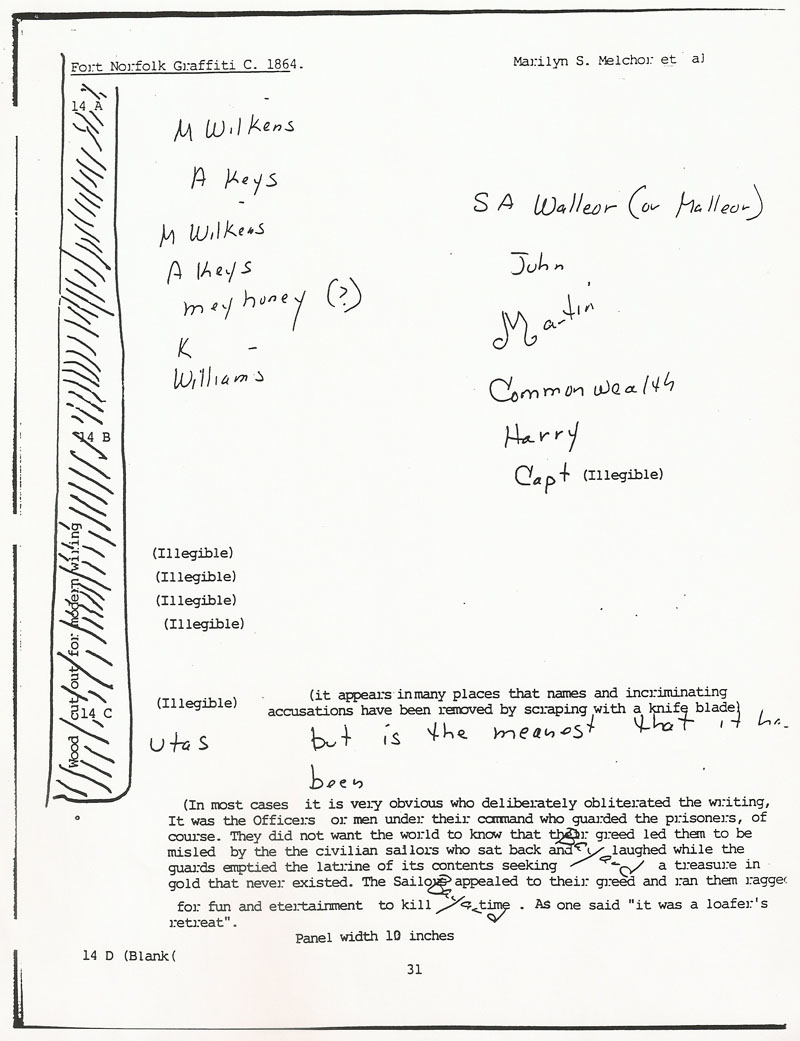 Fort Norfolk Graffiti C. 1864.
Marilyn S. Melchor et al
14 A
M Wilkens
A Keys
M Wilkens
A Keys
mey honey (?)
K
Williams
S A Walleor (or Malleor)
John
Martin
Common wealth
Harry
Capt (Illegible)
14 B
Wood cut out for modern wiring
(Illegible)
(Illegible)
(Illegible)
(Illegible)
14 C
(Illegible)
(it appears in many places that names and incriminating
accusations have been removed by scraping with a knife blade)
utas
but is the meanest that it
been
(In most cases it is very obvious who deliberately obliterated the writing,
It was the Officers or men under their command who guarded the prisoners, of
course. They did not want the world to know that their greed led them to be
misled by the the civilian sailors who sat back and laughed while the
guards emptied the latrine of its contents seeking a treasure in
gold that never existed. The Sailors appealed to their greed and ran them ragge
for fun and etertainment to kill time . As one said "it was a loafer's
retreat".
Panel width 10 inches
14 D (Blank(
31